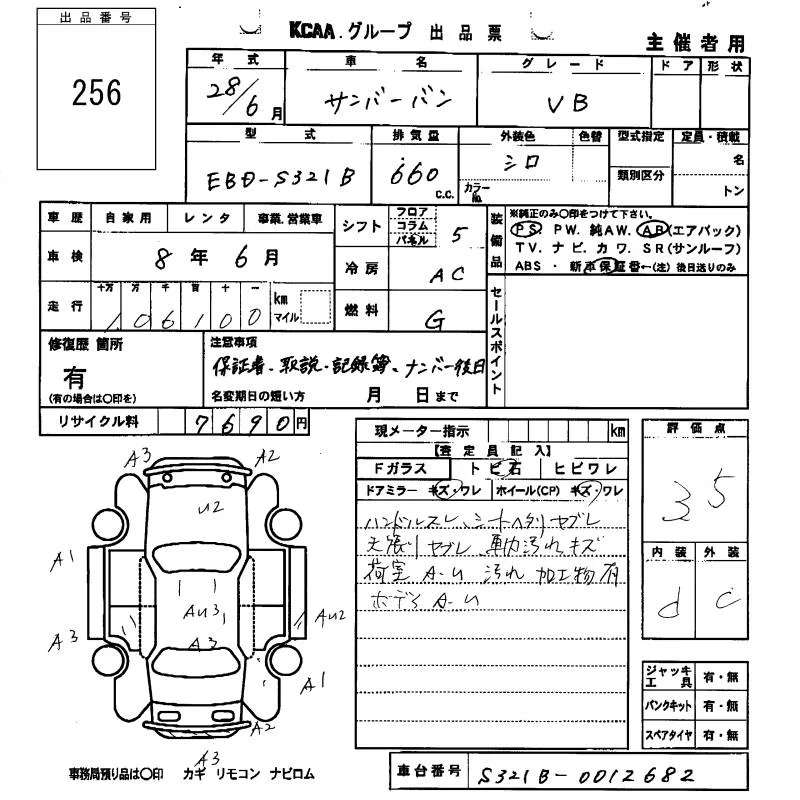 出品番号
256
KCAA.グループ 出品票
主催者用
年式 車名 グレード ドア 形状
28/6月 サンバーバン VB
型式 排気量 外装色 色替 型式指定 定員・積載
EBD-S321B 660 C.C. シロ カラーNo. 類別区分 名 トン
車歴 自家用 レンタ 事業.営業車
シフト フロア コラム パネル 5
装備品 ※純正のみ〇印をつけて下さい。
PS. PW. 純AW. AB(エアバック)
TV. ナビ. カワ. SR(サンルーフ)
ABS ・ 新車保証書←(注)後日送りのみ
車検 8年6月
冷房 AC
走行 十万 万 千 百 十 一 km マイル
106100
燃料 G
セールスポイント
修復歴 箇所
有
(有の場合は〇印を)
注意事項
保証書、取説・記録簿、ナンバー後日
名変期日の短い方 月 日まで
リサイクル料 7690円
現メーター指示 km
【査定員記入】
Fガラス トビ石 ヒビワレ
ドアミラー キズ・ワレ ホイール(CP) キズ・ワレ
ハンドルスレ、シートヘタリ ヤブレ
天張り ヤブレ 車内汚れ キズ
荷室 A-U 汚れ 加工物有
ボディ A-U
評価点
3.5
内装 外装
d C
ジャッキ工具 有・無
パンクキット 有・無
スペアタイヤ 有・無
A3 A2
U2
A1
AU3 AU2
A3 A3
A1
A2
A3
事務局預り品は〇印 カギ リモコン ナビロム
車台番号 S321B-0012682